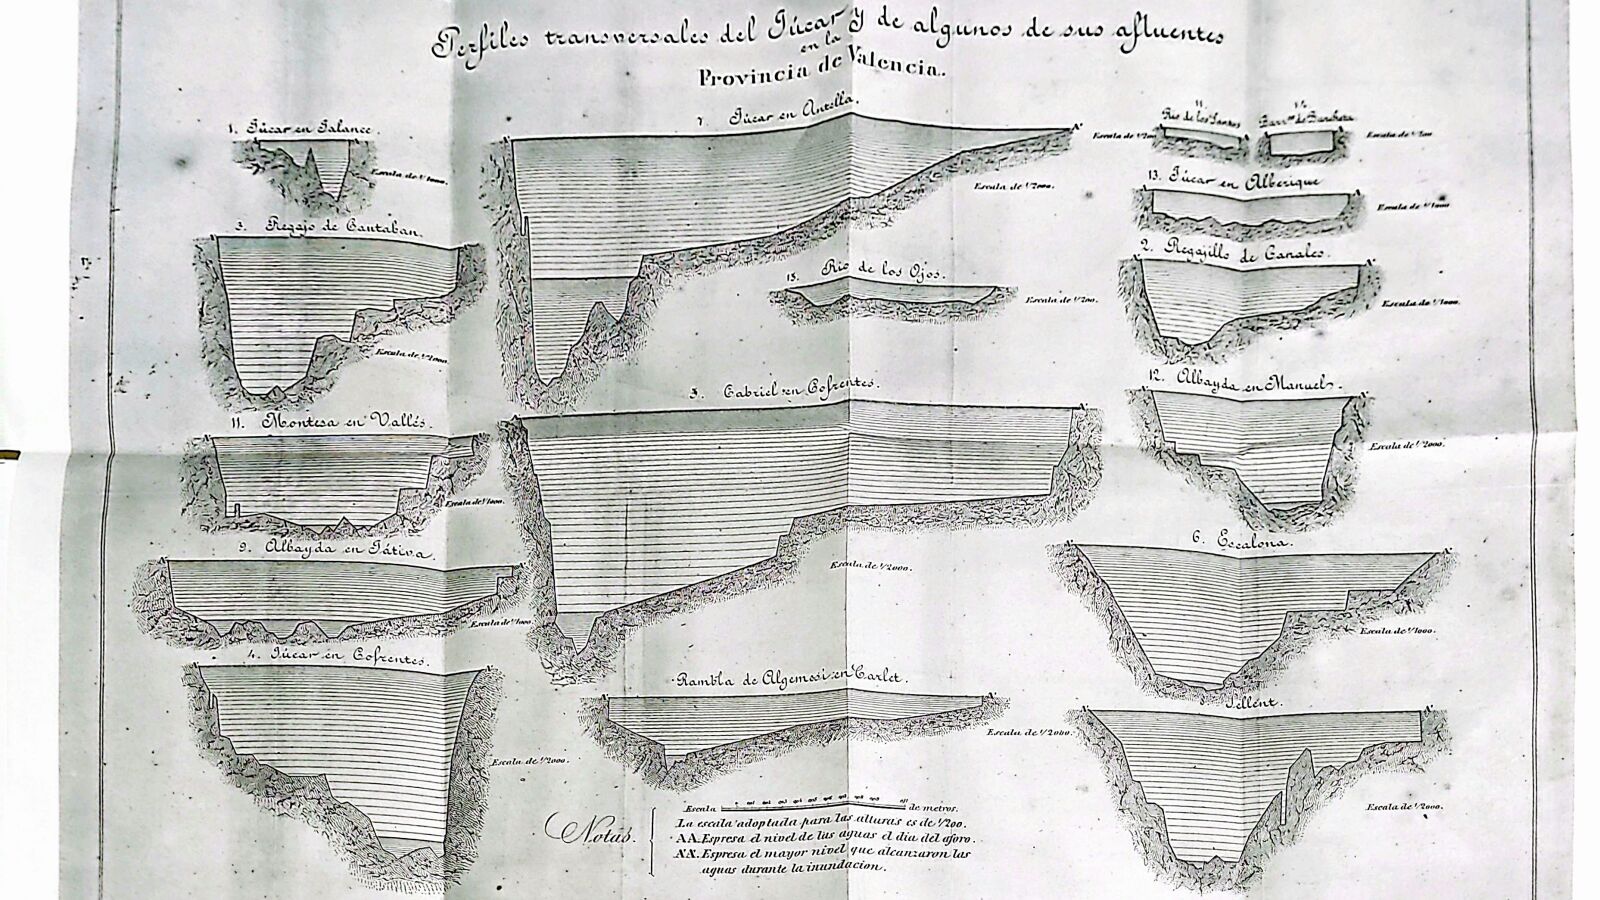 Perfiles transversales del Júcar y de algunos de sus afluentes
en la
Provincia de Valencia.
1. Júcar en Jalance.
Escala de 1/1000.
7. Júcar en Antella.
Escala de 1/2000.
11
Rio de los Santos
Escala de 1/200
Barr.co de Barcheta
Escala de 1/200
13. Júcar en Alberique
Escala de 1/1000
3. Regajo de Cantaban.
Escala de 1/2000.
15. Rio de los Ojos.
Escala de 1/200.
2. Regajillo de Canales.
Escala de 1/1000.
11. Montesa en Vallés.
Escala de 1/1000.
5. Cabriel en Cofrentes.
Escala de 1/2000.
12. Albayda en Manuel.
Escala de 1/2000.
9. Albayda en Játiva.
Escala de 1/1000.
6. Escalona.
Escala de 1/1000.
4. Júcar en Cofrentes.
Escala de 1/2000.
Rambla de Algemesi en Carlet.
Escala de 1/2000.
Sellent.
Escala de 1/2000.
Notas.
Escala de metros.
La escala adoptada para las alturas es de 1/200.
AA. Espresa el nivel de las aguas el dia del aforo.
A'A'. Espresa el mayor nivel que alcanzaron las
aguas durante la inundacion.